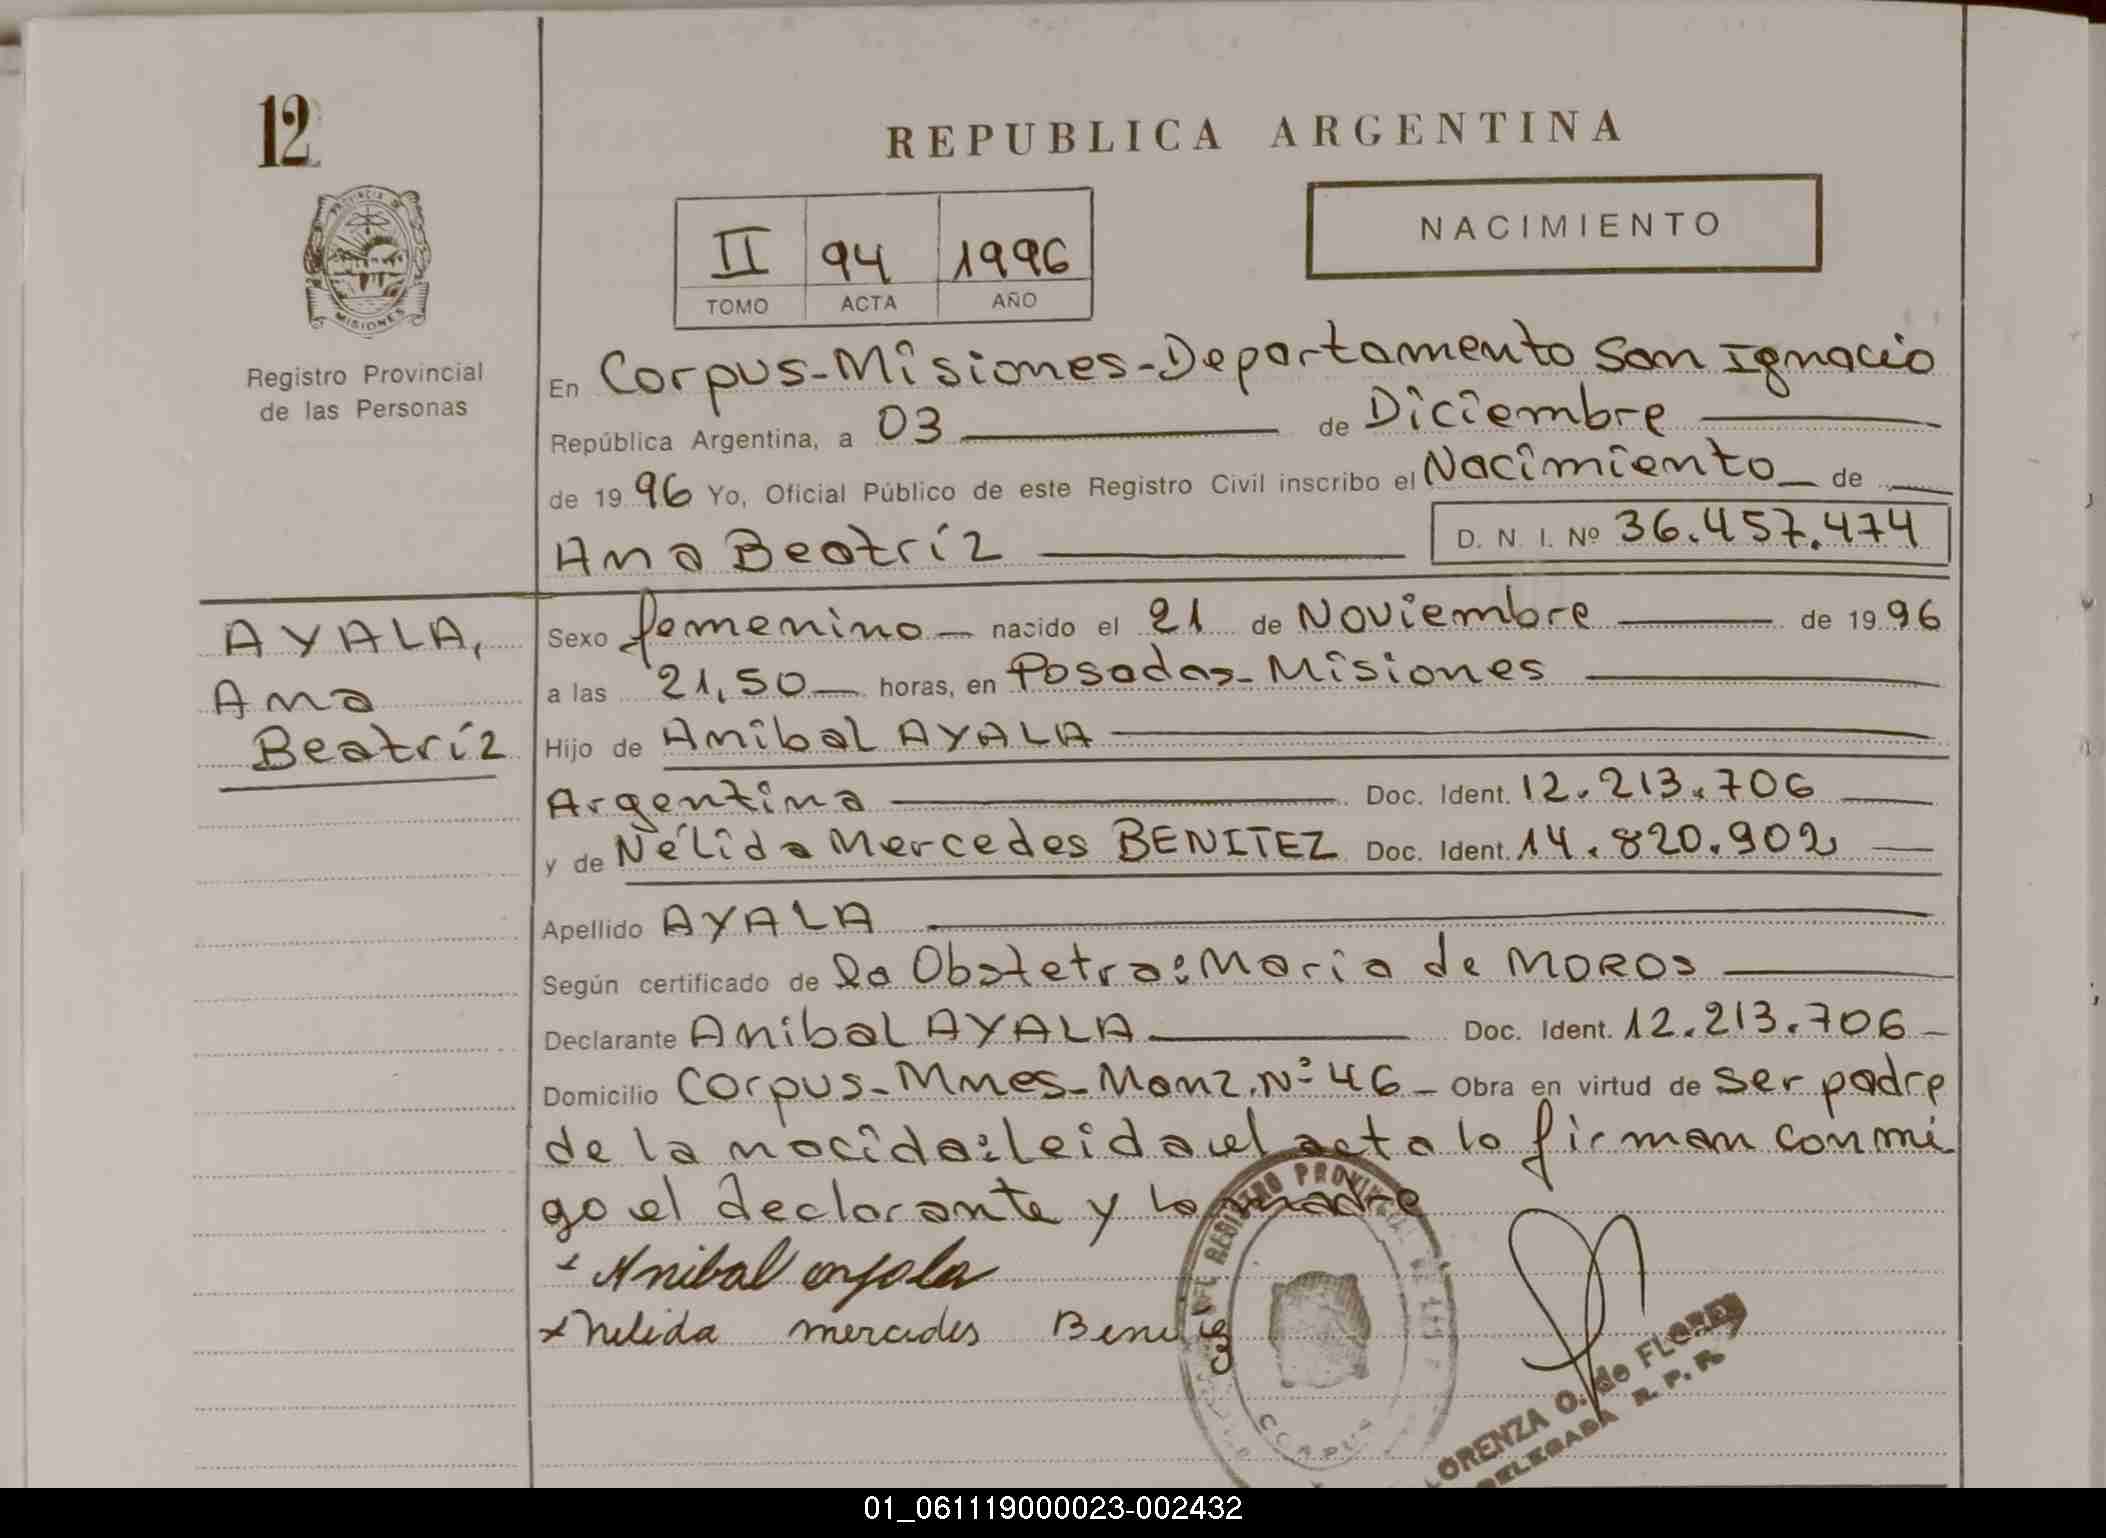 12
REPUBLICA ARGENTINA
PROVINCIA DE
MISIONES
Registro Provincial
de las Personas
II 94 1996
TOMO ACTA AÑO
NACIMIENTO
En Corpus-Misiones-Departamento San Ignacio
República Argentina, a 03 de Diciembre
de 1996 Yo, Oficial Público de este Registro Civil inscribo el Nacimiento de
Ana Beatríz
D. N. I. Nº 36.457.474
AYALA,
Ana
Beatríz
Sexo femenino nacido el 21 de Noviembre de 1996
a las 21,50 horas, en Posadas-Misiones
Hijo de Anibal AYALA
Argentina Doc. Ident. 12.213.706
y de Nélida Mercedes BENITEZ Doc. Ident. 14.820.902
Apellido AYALA
Según certificado de la Obstetra: Maria de MOROS
Declarante Anibal AYALA Doc. Ident. 12.213.706
Domicilio Corpus-Mnes-Manz.Nº 46 Obra en virtud de ser padre
de la nacida: leida el acta la firman conmi
go el declarante y la madre
Anibal ayala
Nelida mercedes
REGISTRO PROVINCIAL
CORPUS
LORENZA O. de FLORES
DELEGADA R. P. P.
01_061119000023-002432